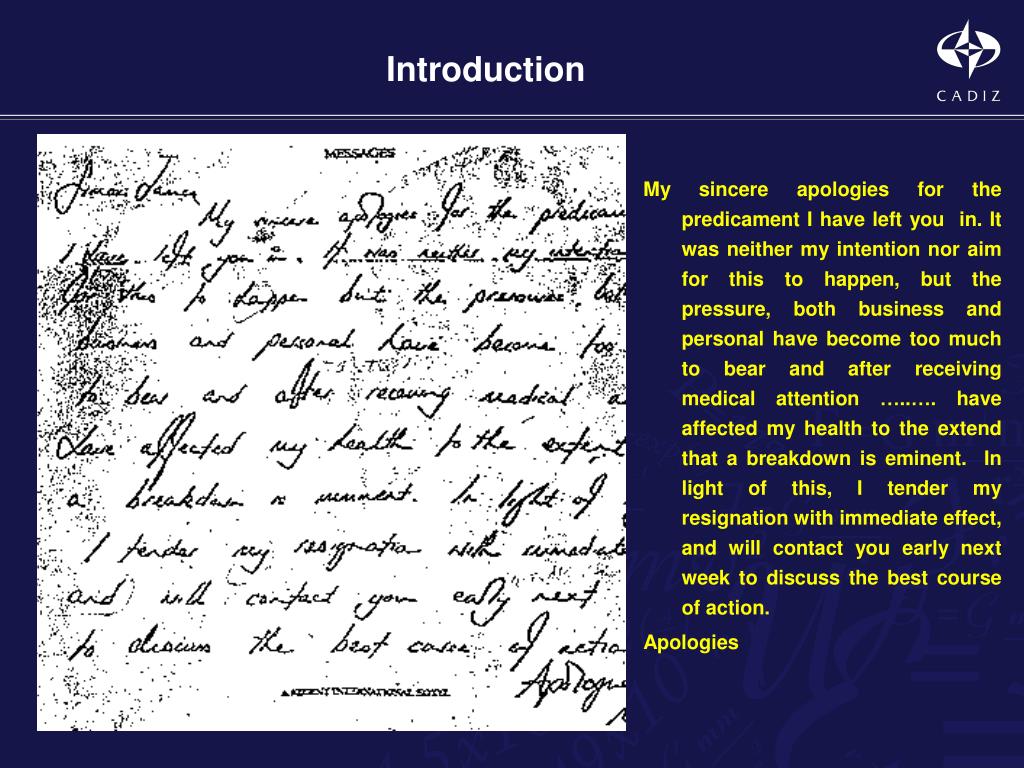 Introduction
CADIZ
MESSAGES
My sincere apologies for the predicam
I have left you in. It was neither my intention
for this to happen but the pressure, both
business and personal have become too
to bear and after receiving medical a
have affected my health to the extent
a breakdown is imminent. In light of
I tender my resignation with immediate
and will contact you early next
to discuss the best course of action
Apologies
INTERNATIONAL HOTEL
My sincere apologies for the
predicament I have left you in. It
was neither my intention nor aim
for this to happen, but the
pressure, both business and
personal have become too much
to bear and after receiving
medical attention …..…. have
affected my health to the extend
that a breakdown is eminent. In
light of this, I tender my
resignation with immediate effect,
and will contact you early next
week to discuss the best course
of action.
Apologies